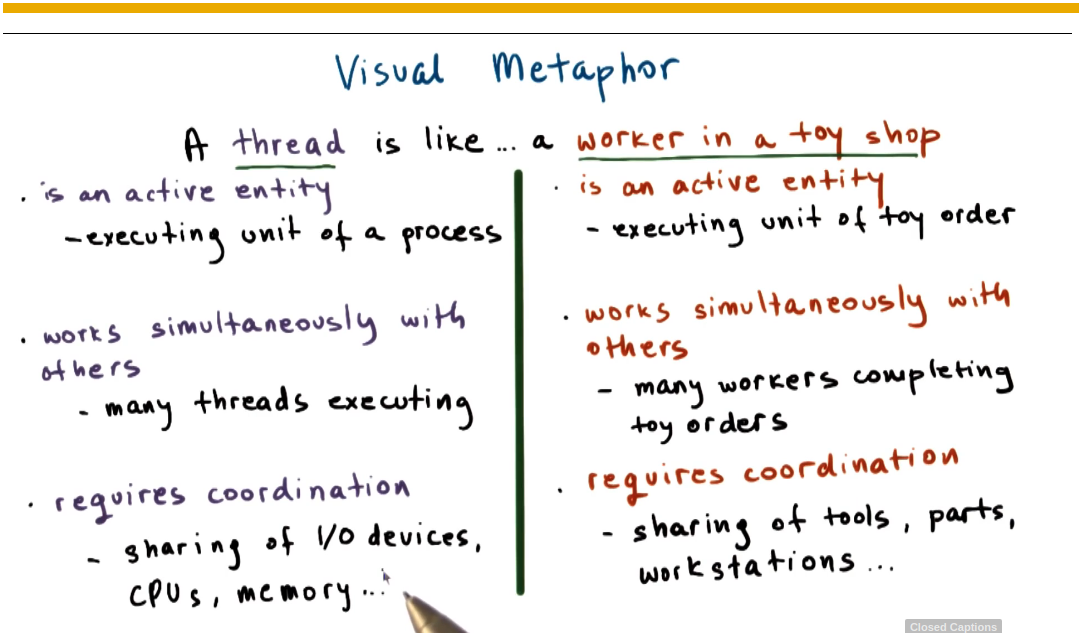 Visual Metaphor
A thread is like... a worker in a toy shop
. is an active entity
- executing unit of a process
. works simultaneously with
others
- many threads executing
. requires coordination
- sharing of I/O devices,
CPUs, memory...
. is an active entity
- executing unit of toy order
. works simultaneously with
others
- many workers completing
toy orders
. requires coordination
- sharing of tools, parts,
workstations...
Closed Captions